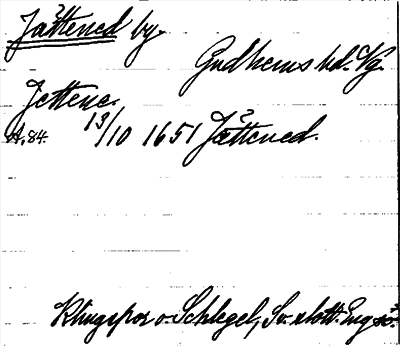 Jättened by.
Gudhems hd. Vg.
Jettene.
A. 84. 13/10 1651 Jættened.
Klingspor o. Schlegel, Sv. slott. Engsö.